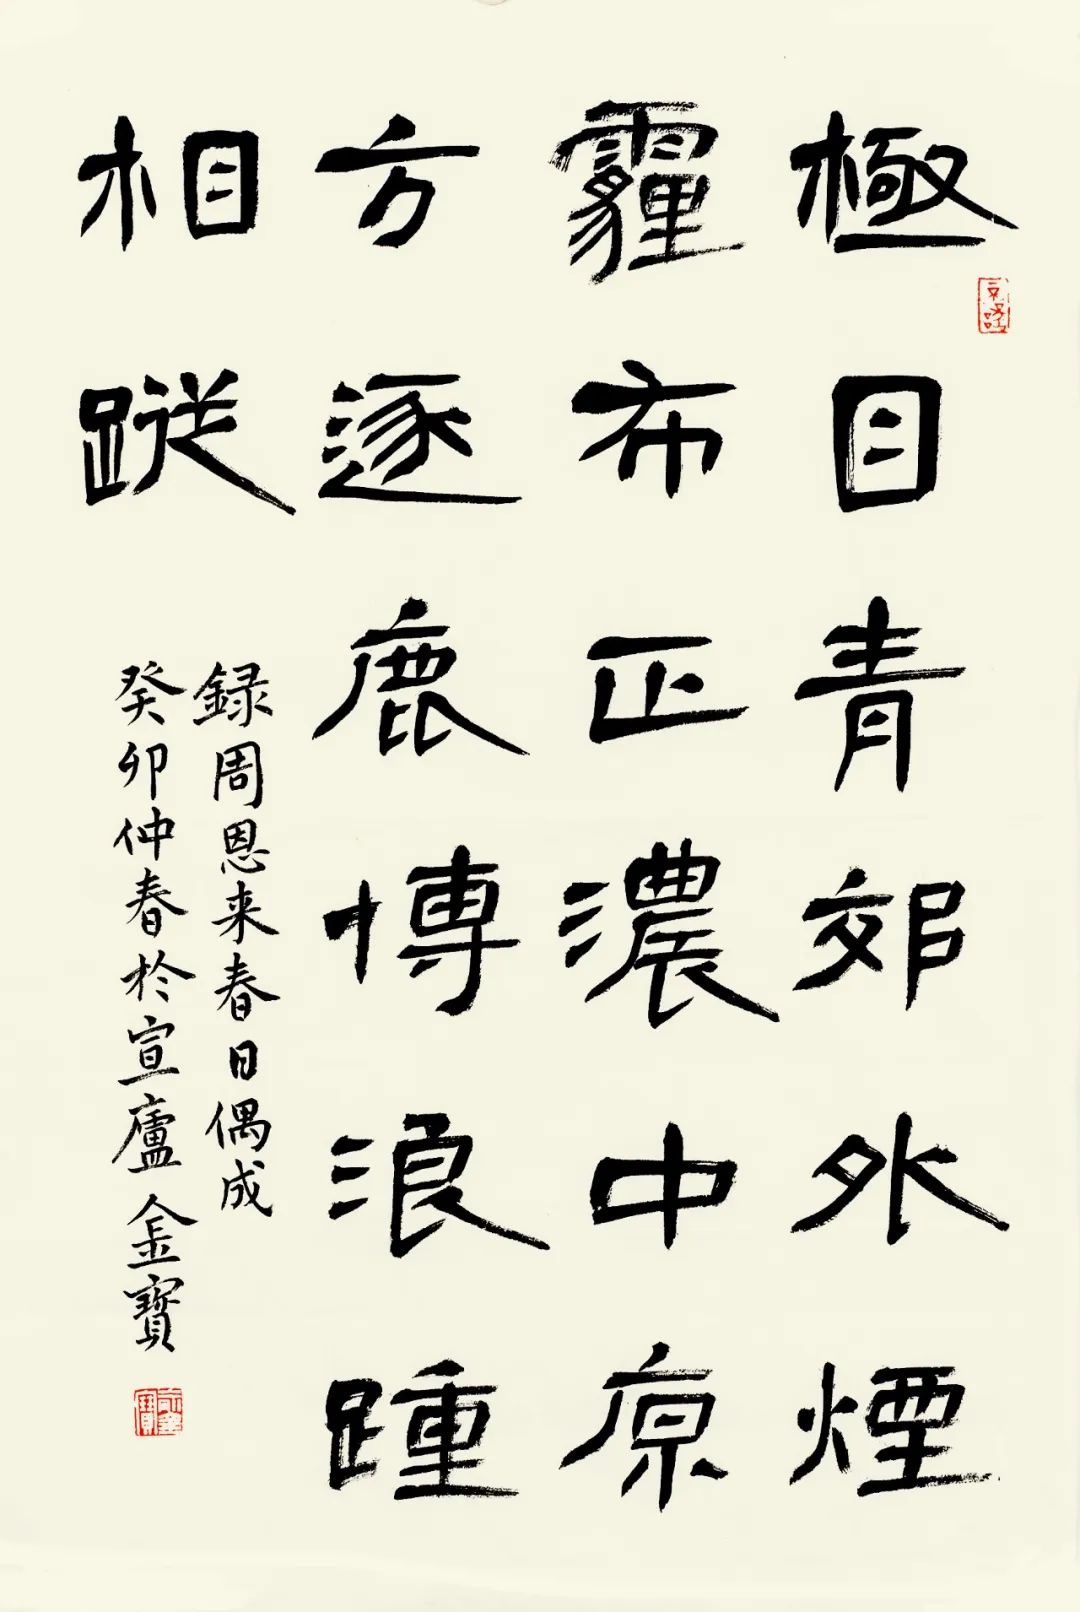 極目青郊外煙
霾布正濃中原
方逐鹿博浪踵
相蹤
録周恩来春日偶成
癸卯仲春於宣廬金寶